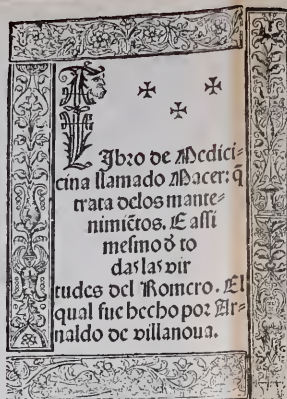 LJbro de Medici=
cina llamado Macer: q̃
trata delos mante-
nimiẽtos. E assi
mesmo ð to
das las vir
tudes del Romero. El
qual fue hecho por Ar=
naldo de villanoua.